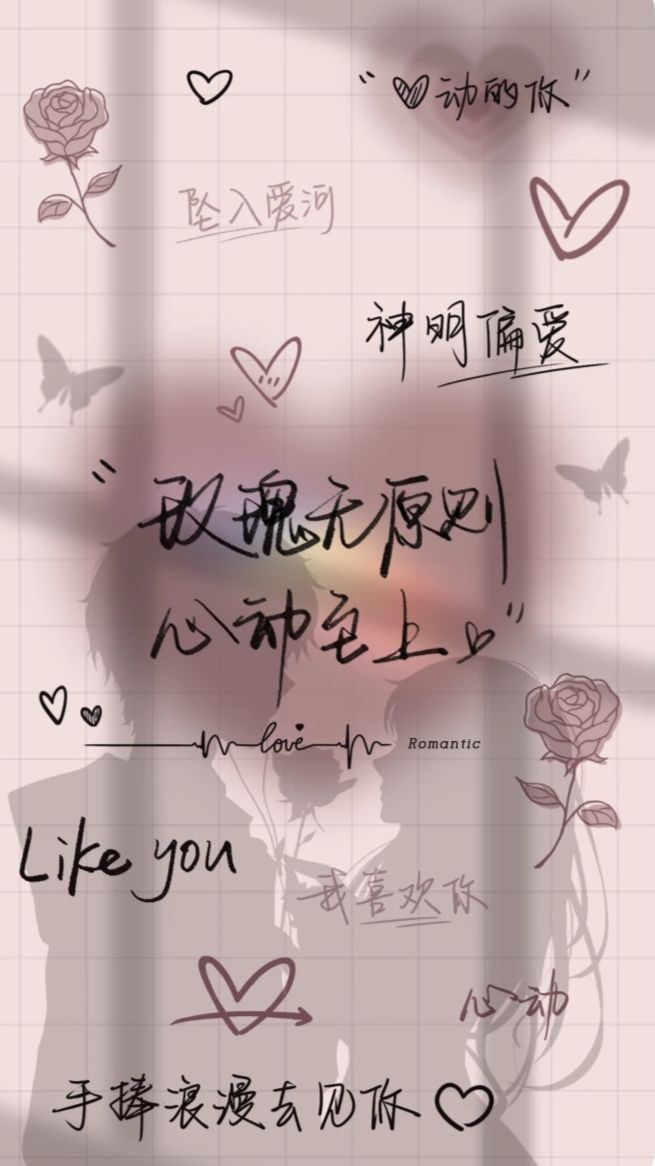 “♥动的你”
坠入爱河
神明偏爱
“玫瑰无原则
心动至上”
love Romantic
Like you
我喜欢你
心动
手捧浪漫去见你